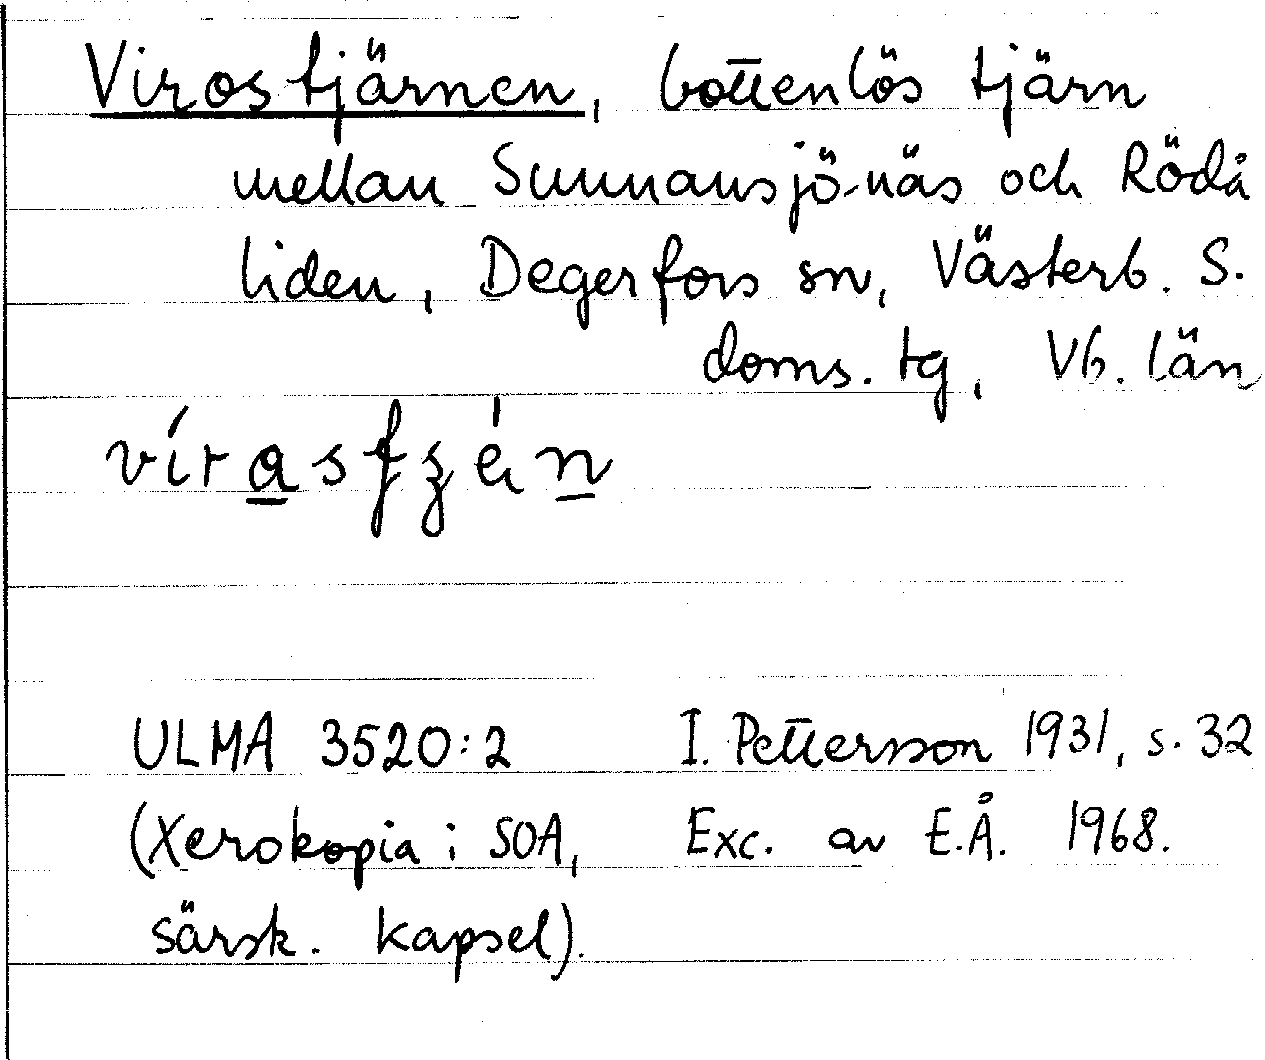 Virostjärnen, bottenlös tjärn
mellan Sunnansjönäs och Rödå
liden, Degerfors sn, Västerb. S.
doms. tg, Vb. län
ULMA 3520:2 I. Pettersson 1931, s. 32
(Xerokopia i SOA, Exc. av E.Å. 1968.
särsk. kapsel).